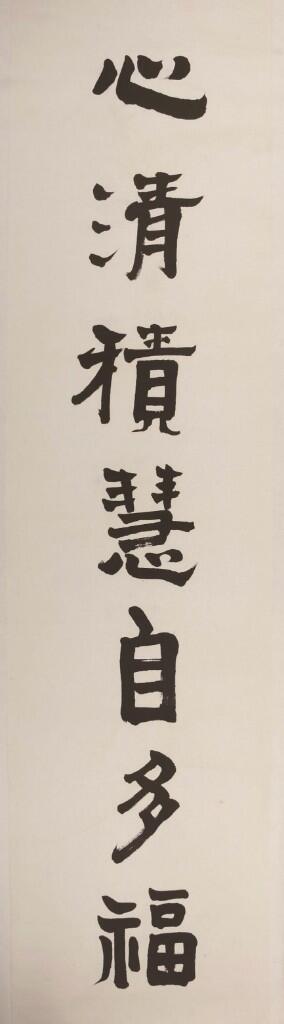 心清積慧自多福